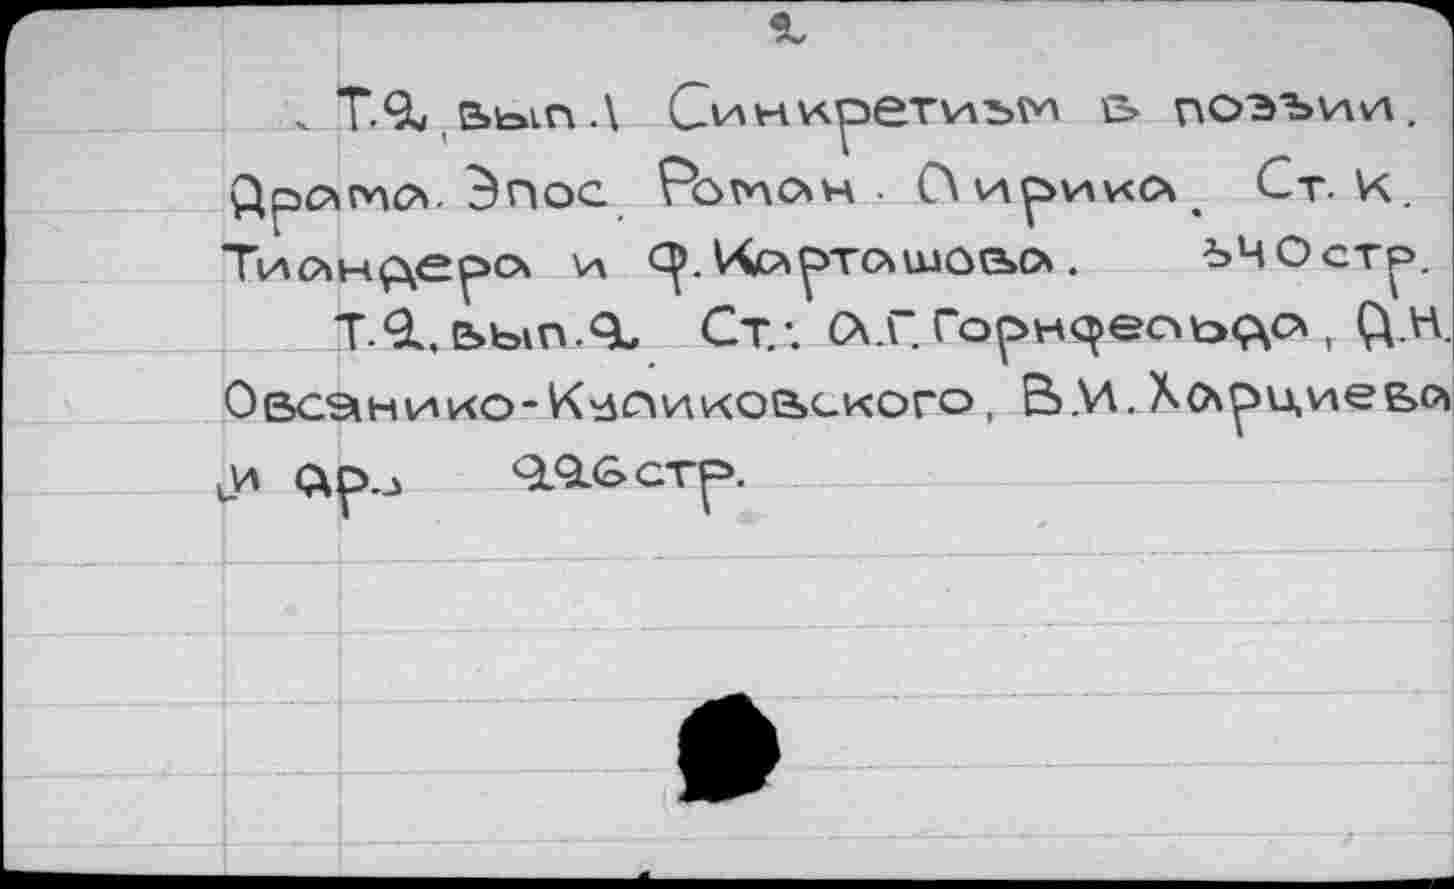 2
Т.2, вып.1 Синкретизм в поэзии.
Драма. Эпос. Роман. Лирика. Ст. К.
Тиандера и Ф. Карташова. 340 стр.
Т.2, вып.2. Ст.: А.Г. Горнфельда, Д.Н.
Овсянико-Куликовского, В.И. Харциева
[и др.] 226 стр.